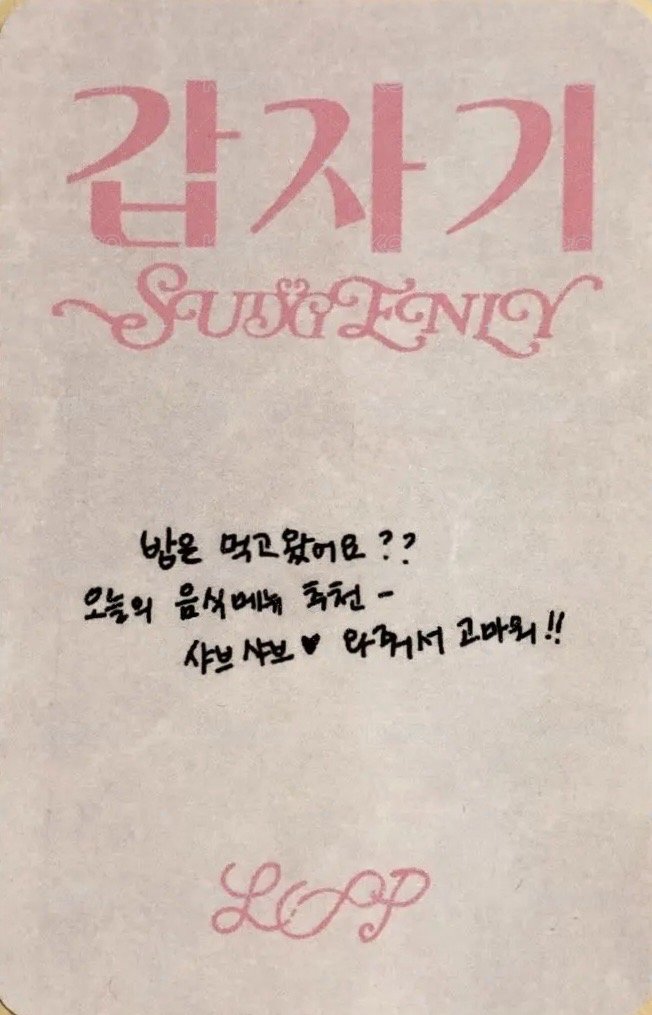 갑자기
SUDDENLY
밥은 먹고왔어요??
오늘의 음식메뉴 추천-
샤브샤브♥ 와줘서 고마워!!